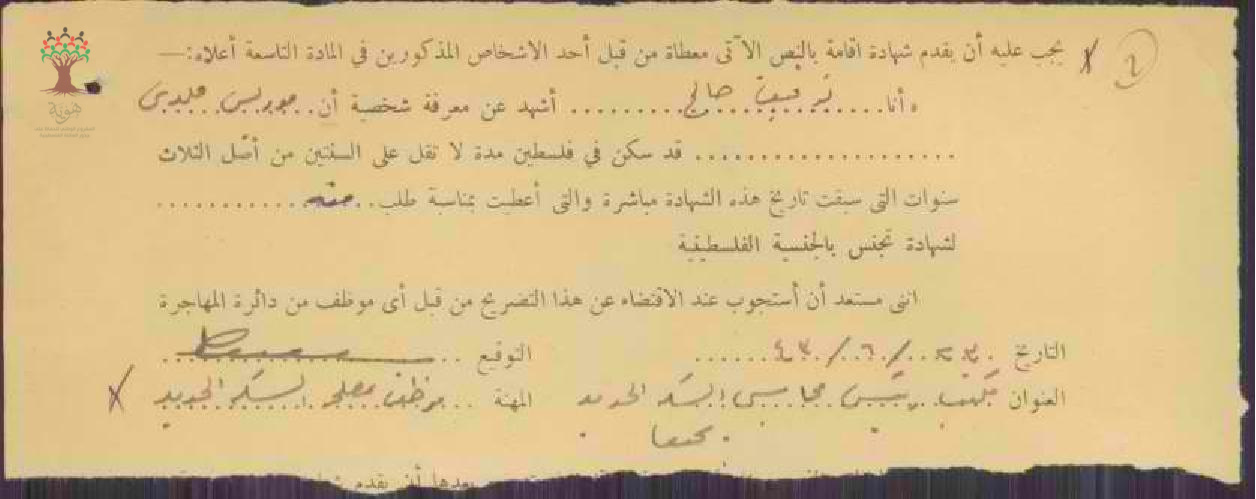 هوية
2
يجب عليه أن يقدم شهادة اقامة بالنص الآتى معطاة من قبل أحد الاشخاص المذكورين في المادة التاسعة أعلاه:—
«أنا..... صالح......... أشهد عن معرفة شخصية أن..
.................... قد سكن في فلسطين مدة لا تقل على السنتين من أصل الثلاث
سنوات التى سبقت تاريخ هذه الشهادة مباشرة والتى أعطيت بمناسبة طلب..منه............
لشهادة تجنس بالجنسية الفلسطينية
اننى مستعد أن أستجوب عند الاقتضاء عن هذا التصريح من قبل أى موظف من دائرة المهاجرة
التاريخ ......... التوقيع ..
العنوان مكتب رئيس محاسبى السكة الحديد المهنة ..موظف السكة الحديد
بحيفا